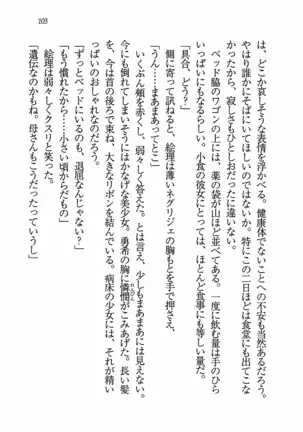 103
は、どこか哀しそうな表情を浮かべる。健康体でないことへの不安も当然あるだろう。
いつも寝ているのではないか。特にこの二日ほどは食堂にも出てこな
かったから、寂しさもひとしおだったに違いない。
ベッド脇のワゴンの上には、薬の袋が山ほど並べてある。一度に飲む量は手のひら
いっぱいにもなるだろう。小食の彼女にとっては、ほとんど食事にも等しい量だ。
「具合、どう?」
側に寄って訊ねると、絵理は薄いネグリジェの胸もとを手で押さえ、
「うん……まあまあってとこ」
いくぶん頬を赤くし、弱々しく答えた。とは言え、少しもまあまあには見えない。
今にも倒れてしまいそうにはかなげな美少女。勇希の胸に憐憫がこみあげた。長い髪
を、今は首の後ろで束ね、大きなリボンを結んでいる。病床の少女には、それが精い
っぱいのおしゃれなのだろう。
「ずっとベッドにいるの、退屈なんじゃない?」
「もう慣れたから……小さい頃からだもの」
絵理は弱々しくクスリと笑った。
「遺伝なのかもね。母さんもこうだったっていうし」